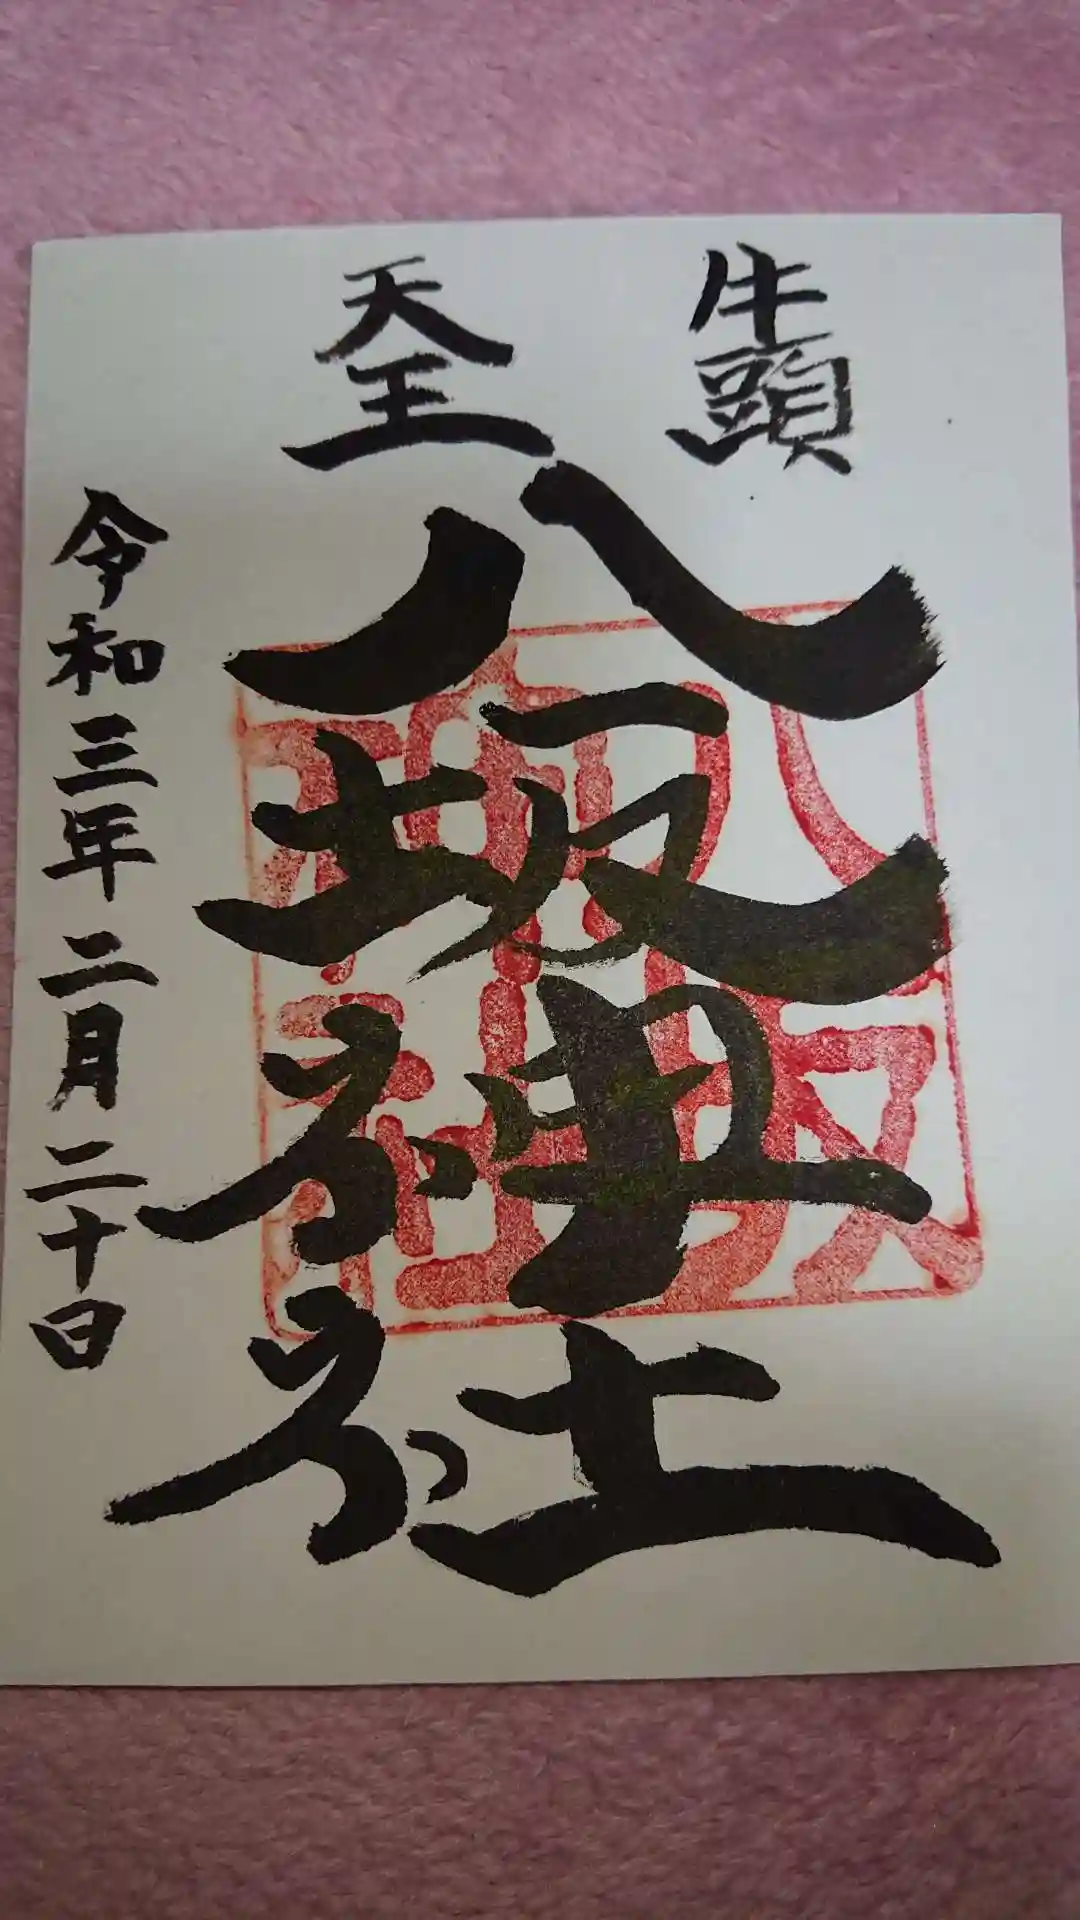 牛頭
天王
八坂神社
令和三年二月二十日
八坂
神社